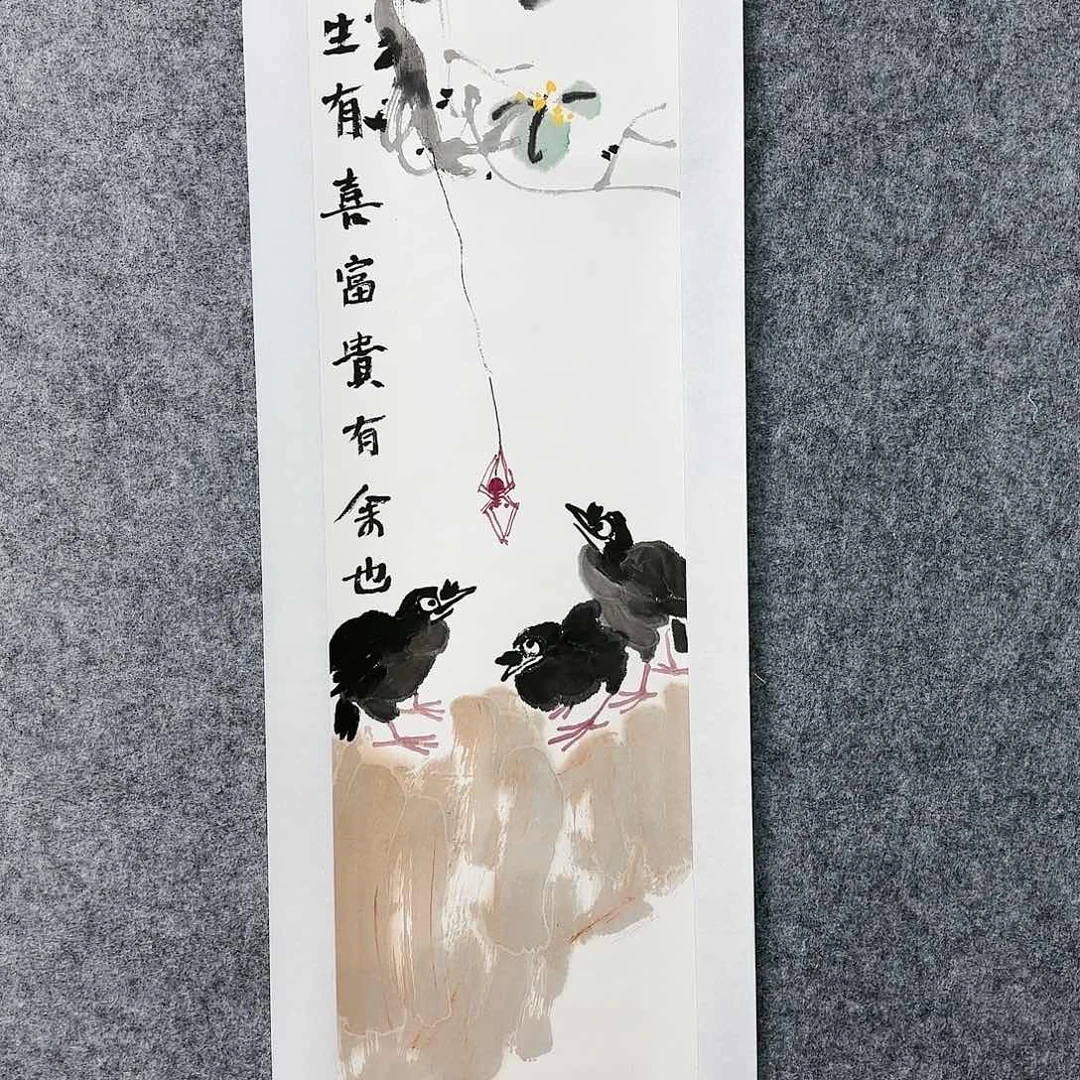 生有喜富貴有余也